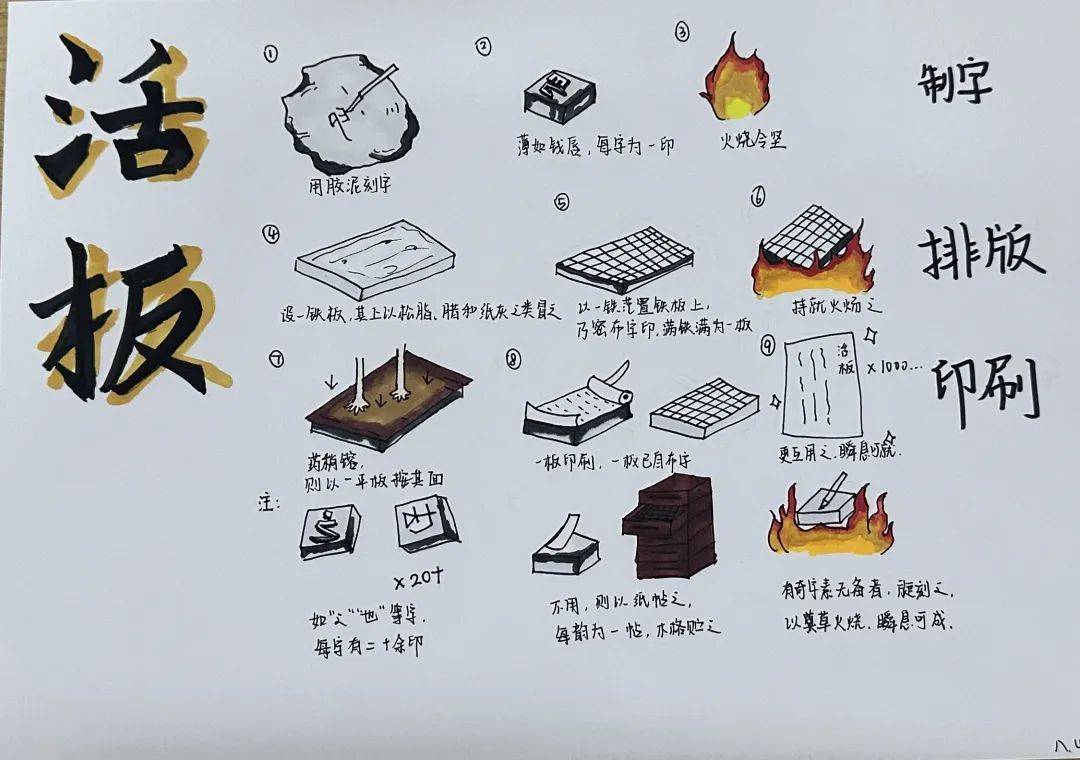 活板
①
用胶泥刻字
②
薄如钱唇，每字为一印
③
火烧令坚
制字
④
设一铁板，其上以松脂、腊和纸灰之类冒之
⑤
以一铁范置铁板上，
乃密布字印，满铁满为一板
⑥
持就火炀之
排版
⑦
药稍镕，
则以一平板按其面
⑧
一板印刷，一板已自布字
⑨
活板
×1000...
更互用之，瞬息可就．
印刷
注：
×20+
如“之”“也”等字，
每字有二十余印
不用，则以纸帖之，
每韵为一帖，木格贮之
有奇字素无备者，旋刻之，
以草火烧，瞬息可成．